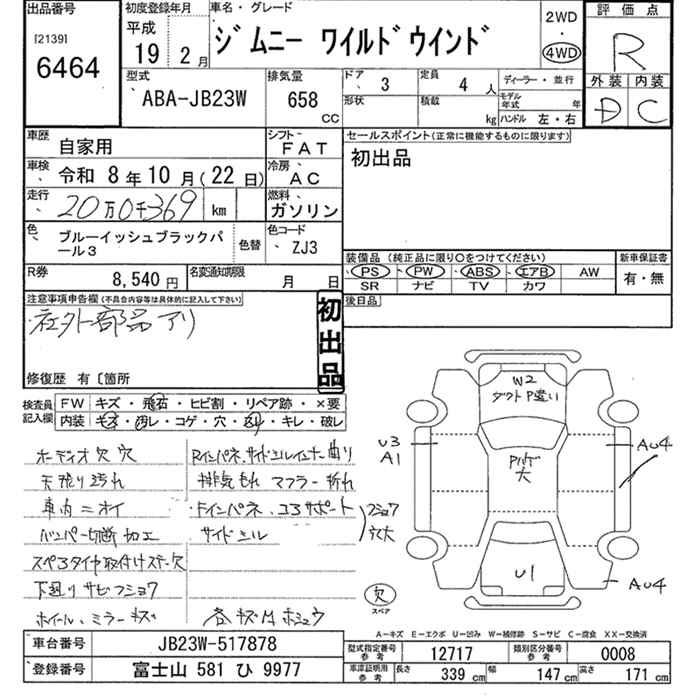 出品番号
[2139]
6464
初度登録年月
平成
19 2月
車名・グレード
ジムニー ワイルドウインド
2WD
・
4WD
評価点
R
外装 内装
D C
型式
ABA-JB23W
排気量
658
CC
ドア 3
定員 4人
ディーラー・並行
形状
積載 kg
モデル年式 年
ハンドル 左・右
車歴
自家用
シフト
FAT
車検
令和 8年10月(22日)
冷房
AC
走行
20万0千369 km
燃料
ガソリン
色
ブルーイッシュブラックパール3
色替
色コード
ZJ3
R券
8,540円
名変通知期限
月 日
セールスポイント(正常に機能するものに限ります)
初出品
装備品(純正品に限り○をつけてください)
PS PW ABS エアB AW
SR ナビ TV カワ
新車保証書
有・無
後日品
注意事項申告欄(不具合内容等は具体的に記入して下さい)
社外部品アリ
初出品
修復歴 有〔箇所
検査員記入欄
FW キズ・飛石・ヒビ割・リペア跡・×要
内装 キズ・汚レ・コゲ・穴・ヌリ・キレ・破レ
オーディオ欠 穴
天張り汚れ
車内ニオイ
バンパー切断加工
スペアタイヤ取付けステー欠
下廻りサビフショク
ホイール、ミラーキズ
Rインパネ、サイドシルインナー曲り
排気もれ マフラー折れ
Fインパネ、コアサポート
サイドシル
フショク
穴大
各キズ凹ホシュウ
W2
ダクトP違い
U3
A1
AU4
Pハゲ
大
U1
AU4
欠
スペア
A-キズ E-エクボ U-凹み W-補修跡 S-サビ C-腐食 XX-交換済
車台番号
JB23W-517878
登録番号
富士山 581 ひ 9977
型式指定番号
参考
12717
類別区分番号
参考
0008
車庫証明用
参考
長さ 339 cm
幅 147 cm
高さ 171 cm